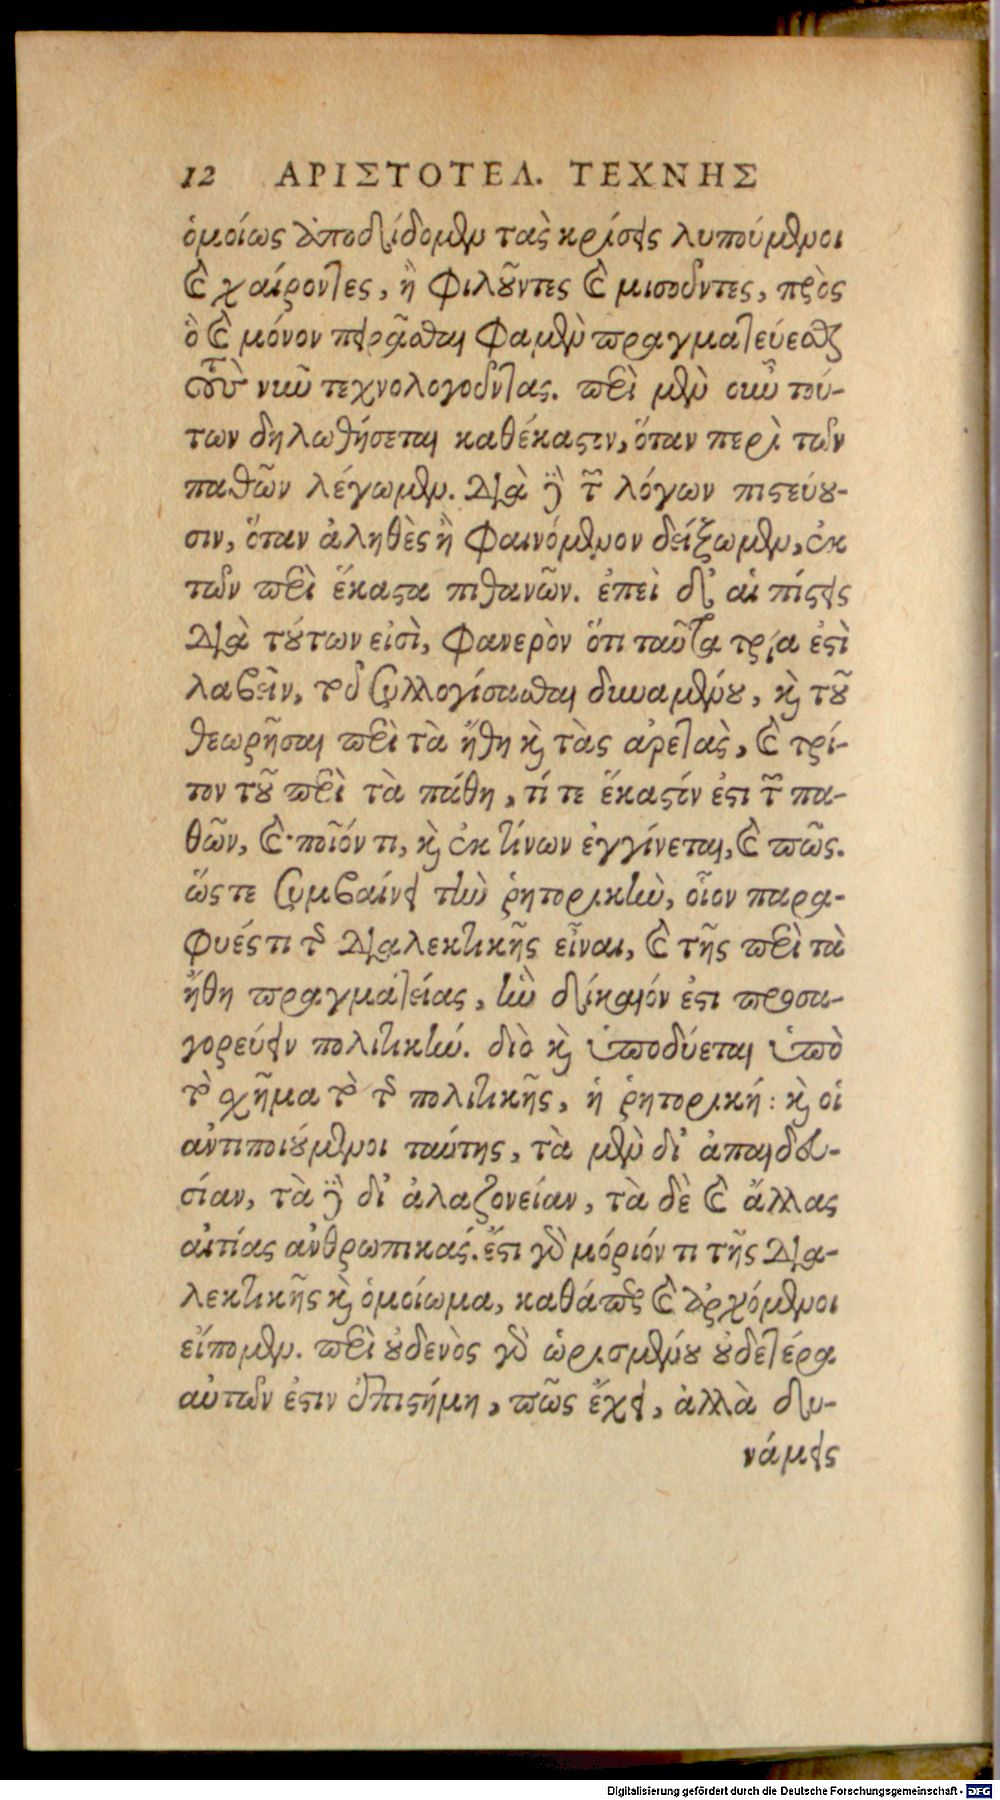 12 ΑΡΙΣΤΟΤΕΛ. ΤΕΧΝΗΣ
ὁμοίως ἀποδίδομεν τὰς κρίσεις λυπούμενοι
καὶ χαίροντες, ἢ φιλοῦντες καὶ μισοῦντες, πρὸς
ὃ καὶ μόνον πειρᾶσθαι φαμὲν πραγματεύεσθαι
τοὺς νῦν τεχνολογοῦντας. περὶ μὲν οὖν τού-
των δηλωθήσεται καθέκαστον, ὅταν περὶ τῶν
παθῶν λέγωμεν. Διὰ δὲ τῶν λόγων πιστεύου-
σιν, ὅταν ἀληθὲς ἢ φαινόμενον δείξωμεν, ἐκ
τῶν περὶ ἕκαστα πιθανῶν. ἐπεὶ δ' αἱ πίστεις
Διὰ τούτων εἰσὶ, φανερὸν ὅτι ταῦτα τρία ἐστὶ
λαβεῖν, τοῦ συλλογίσασθαι δυναμένου, καὶ τοῦ
θεωρῆσαι περὶ τὰ ἤθη καὶ τὰς ἀρετὰς, καὶ τρί-
τον τοῦ περὶ τὰ πάθη, τί τε ἕκαστόν ἐστι τῶν πα-
θῶν, καὶ ποῖόν τι, καὶ ἐκ τίνων ἐγγίνεται, καὶ πῶς.
ὥστε συμβαίνει τὴν ῥητορικὴν, οἷον παρα-
φυές τι τῆς Διαλεκτικῆς εἶναι, καὶ τῆς περὶ τὰ
ἤθη πραγματείας, ἣν δίκαιόν ἐστι προσα-
γορεύειν πολιτικήν. διὸ καὶ ὑποδύεται ὑπὸ
τὸ σχῆμα τὸ τῆς πολιτικῆς, ἡ ῥητορική: καὶ οἱ
ἀντιποιούμενοι ταύτης, τὰ μὲν δι' ἀπαιδευ-
σίαν, τὰ δὲ δι' ἀλαζονείαν, τὰ δὲ καὶ ἄλλας
αἰτίας ἀνθρωπικάς. ἔστι γὰρ μόριόν τι τῆς Δια-
λεκτικῆς καὶ ὁμοίωμα, καθάπερ καὶ ἀρχόμενοι
εἴπομεν. περὶ οὐδενὸς γὰρ ὡρισμένου οὐδετέρα
αὐτῶν ἐστιν ἐπιστήμη, πῶς ἔχει, ἀλλὰ δυ-
νάμεις
Digitalisierung gefördert durch die Deutsche Forschungsgemeinschaft - DFG